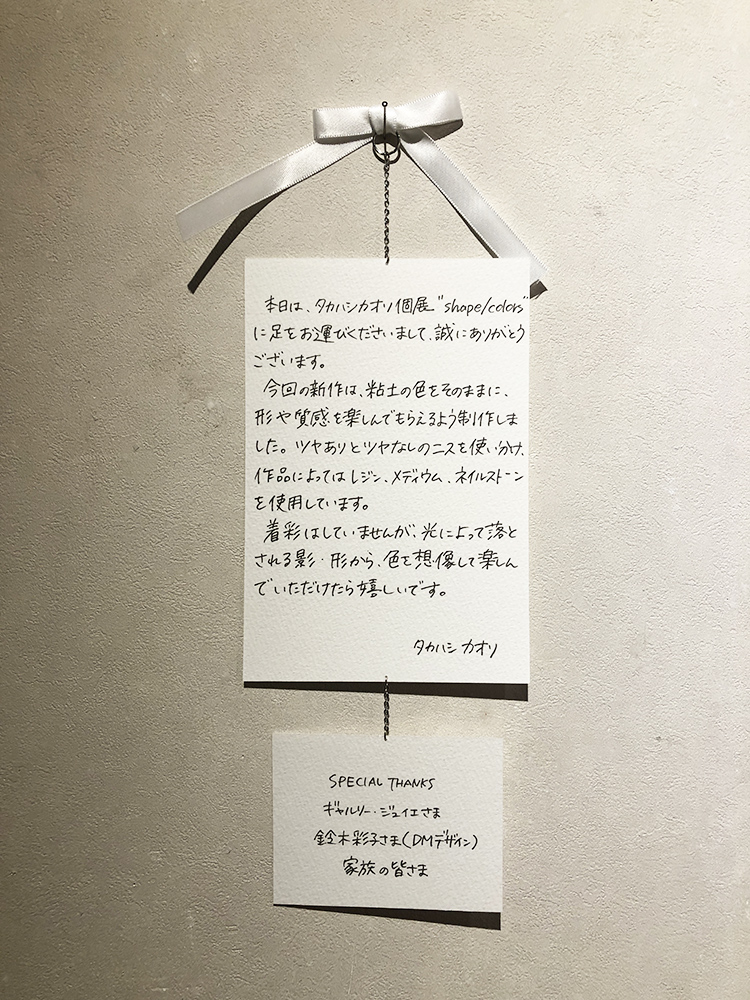 本日は、タカハシカオリ個展"shape/colors"
に足をお運びくださいまして、誠にありがとう
ございます。
今回の新作は、粘土の色をそのままに、
形や質感を楽しんでもらえるよう制作しま
した。ツヤありとツヤなしのニスを使い分け、
作品によってはレジン、メディウム、ネイルストーン
を使用しています。
着彩はしていませんが、光によって落と
される影・形から、色を想像して楽しん
でいただけたら嬉しいです。
タカハシ カオリ
SPECIAL THANKS
ギャルリー・ジュイエさま
鈴木彩子さま(DMデザイン)
家族の皆さま